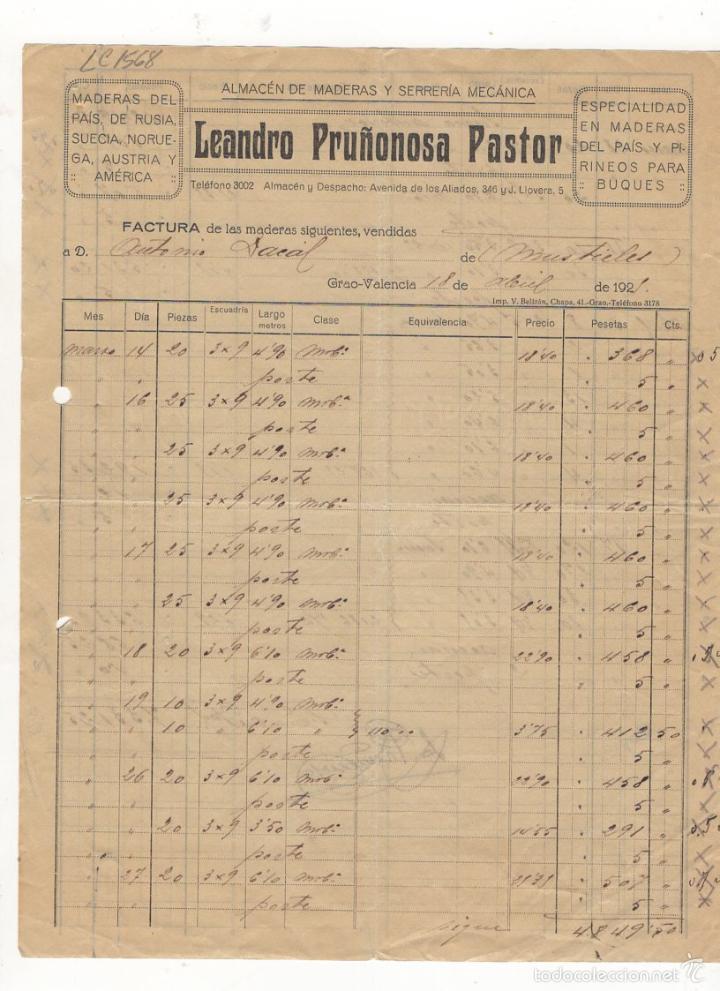 LC 1568
ALMACÉN DE MADERAS Y SERRERÍA MECÁNICA
MADERAS DEL
PAÍS, DE RUSIA,
SUECIA, NORUE-
GA, AUSTRIA Y
AMÉRICA
Leandro Pruñonosa Pastor
ESPECIALIDAD
EN MADERAS
DEL PAÍS Y PI-
RINEOS PARA
BUQUES
Teléfono 3002 Almacén y Despacho: Avenida de los Aliados, 346 y J. Llovera, 5
FACTURA de las maderas siguientes, vendidas
a D. Antonio Lacál de (Mustieles)
Grao-Valencia 18 de Abril de 192
Imp. V. Beltrán, Chapa, 41.-Grao.-Teléfono 3178
Mes Día Piezas Escuadría Largo metros Clase Equivalencia Precio Pesetas Cts.
marzo 14 20 3 x 9 4'90 Mobª 18'40 " 368 "
" " porte " 5 "
" 16 25 3 x 9 4'90 Mobª 18'40 " 460 "
" " porte " 5 "
" 25 3 x 9 4'90 Mobª 18'40 " 460 "
" " porte " 5 "
" 25 3 x 9 4'90 Mobª 18'40 " 460 "
" " porte " 5 "
" 17 25 3 x 9 4'90 Mobª 18'40 " 460 "
" " porte " 5 "
" 25 3 x 9 4'90 Mobª 18'40 " 460 "
" " porte " 5 "
" 18 20 3 x 9 6'10 Mobª 22'90 " 458 "
" " porte " 5 "
" 19 10 3 x 9 4'90 Mobª
" " 10 " 6'10 " 110'00 3'75 " 412 50
" " porte " 5 "
" 26 20 3 x 9 6'10 Mobª 22'90 " 458 "
" " porte " 5 "
" " 20 3 x 9 3'50 Mobª 14'55 " 291 "
" " porte " 5 "
" 27 20 3 x 9 6'10 Mobª " 507 "
" " porte " 5 "
sigue 4849'50
todocoleccion.net